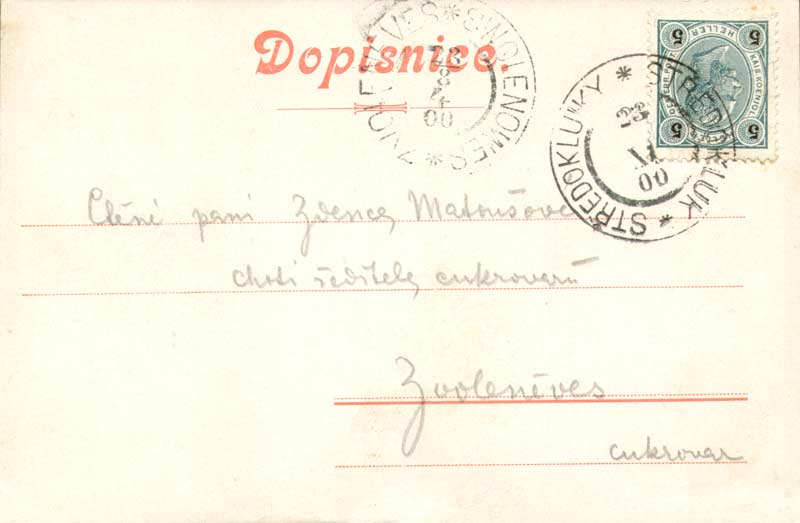 Dopisnice.
ZVOLENĚVES * SWOLENOWES *
23
00
STŘEDOKLUKY * STŘEDOKLUK *
23
XI
00
5 5
HELLER
KAIS. KOENIGL.
5 5
Ctěné paní Zdence Matoušové
choti ředitele cukrovarů
Zvoleněves
cukrovar